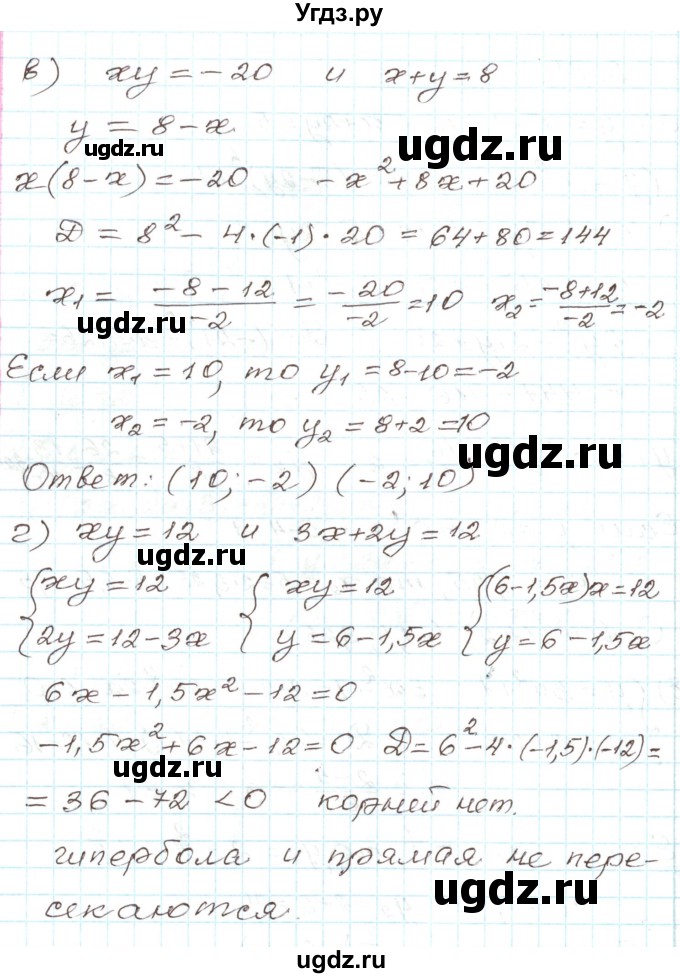 Угдз.ру
в) xy = -20 и x+y=8
y = 8-x
ugdz.ru
x(8-x)=-20 -x²+8x+20
ugdz.ru
D = 8² - 4·(-1)·20 = 64+80=144
x₁ = (-8-12)/(-2) = (-20)/(-2) = 10 x₂ = (-8+12)/(-2) = -2
ugdz.ru
Если x₁ = 10, то y₁ = 8-10 = -2
x₂ = -2, то y₂ = 8+2 = 10
ugdz.ru
Ответ: (10; -2) (-2; 10)
г) xy = 12 и 3x+2y = 12
ugdz.ru
{xy = 12 {xy = 12 {(6-1,5x)x = 12
{2y = 12-3x {y = 6-1,5x {y = 6-1,5x
ugdz.ru
6x - 1,5x² - 12 = 0
-1,5x² + 6x - 12 = 0 D = 6² - 4·(-1,5)·(-12) =
ugdz.ru
= 36 - 72 < 0 корней нет.
гипербола и прямая не пере-
ugdz.ru
секаются.
ugdz.ru